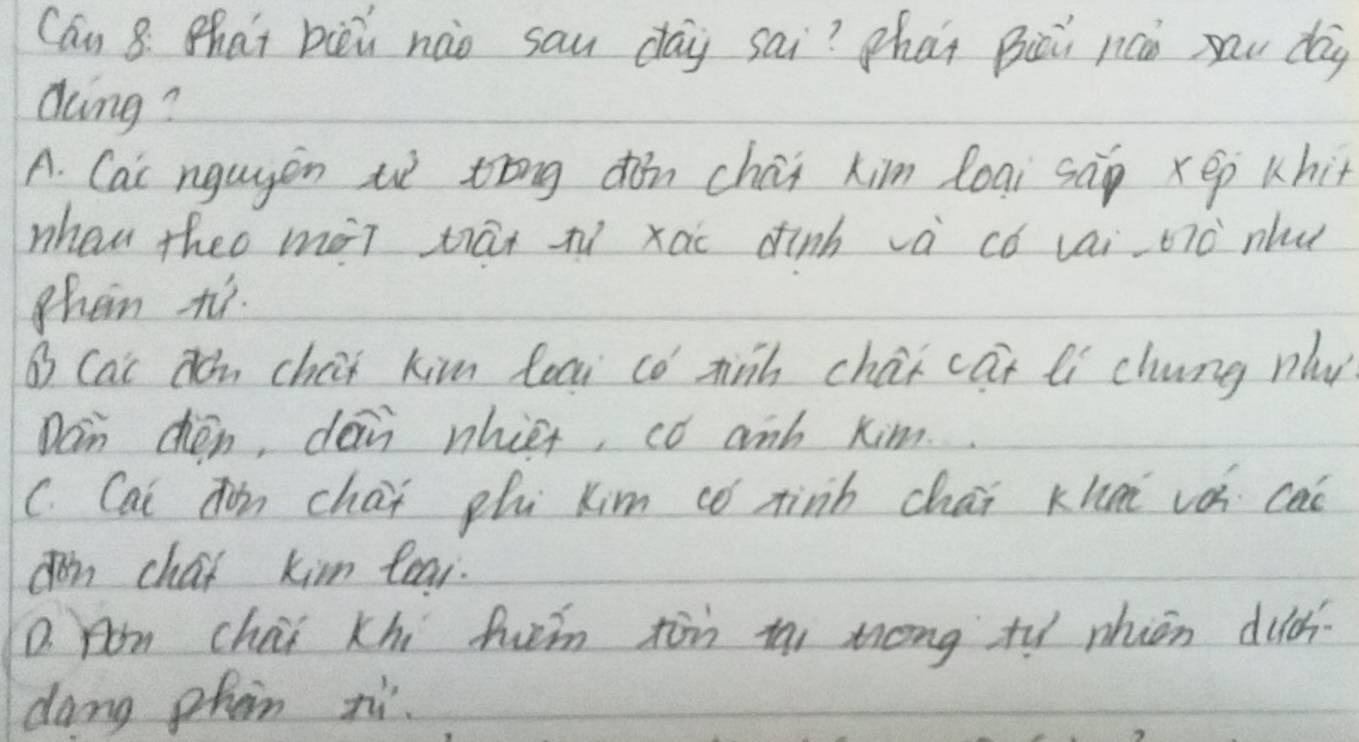 Câu 8: Phát biểu nào sau đây sai? Phát Biểu nào sau đây
đúng?
A. Các nguyên tử trong đơn chất kim loại sắp xếp khít
nhau theo một trật tự xác định và có vai trò như
phân tử.
B Các đơn chất kim loại có tính chất vật lí chung như:
Dẫn điện, dẫn nhiệt, có ánh kim..
C. Các đơn chất phi kim có tính chất khác với các
đơn chất kim loại.
D. Đơn chất khí hiếm tồn tại trong tự nhiên dưới
dạng phân tử.